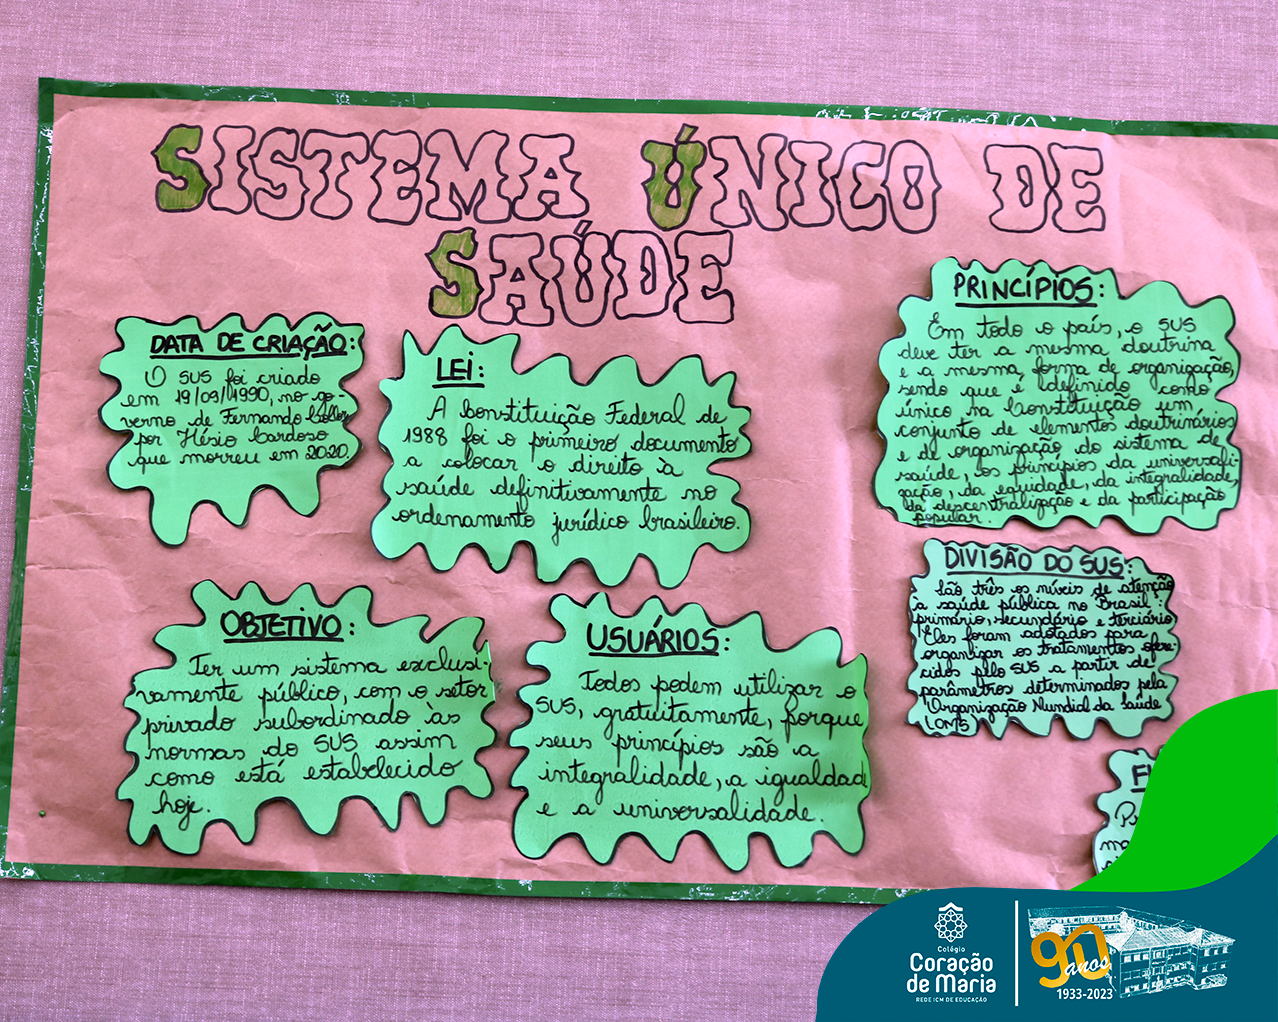 SISTEMA ÚNICO DE
SAÚDE
DATA DE CRIAÇÃO:
O SUS foi criado
em 19/09/1990, no go-
verno de Fernando Collor
por Hésio Cordoso
que morreu em 2020.
LEI:
A Constituição Federal de
1988 foi o primeiro documento
a colocar o direito à
saúde definitivamente no
ordenamento jurídico brasileiro.
PRINCÍPIOS:
Em todo o país, o SUS
deve ter a mesma doutrina
e a mesma forma de organização,
sendo que é definido como
único na Constituição um
conjunto de elementos doutrinários
e de organização do sistema de
saúde, os princípios da universali-
zação, da equidade, da integralidade,
da descentralização e da participação
popular.
OBJETIVO:
Ter um sistema exclusi-
vamente público, com o setor
privado subordinado às
normas do SUS assim
como está estabelecido
hoje.
USUÁRIOS:
Todos podem utilizar o
SUS, gratuitamente, porque
seus princípios são a
integralidade, a igualdad
e a universalidade.
DIVISÃO DO SUS:
São três os níveis de atenção
à saúde pública no Brasil:
primário, secundário e terciário.
Eles foram adotados para
organizar os tratamentos ofere-
cidos pelo SUS a partir de
parâmetros determinados pela
Organização Mundial da Saúde
(OMS)
Colégio
Coração
de Maria
REDE ICM DE EDUCAÇÃO
90
anos
1933-2023